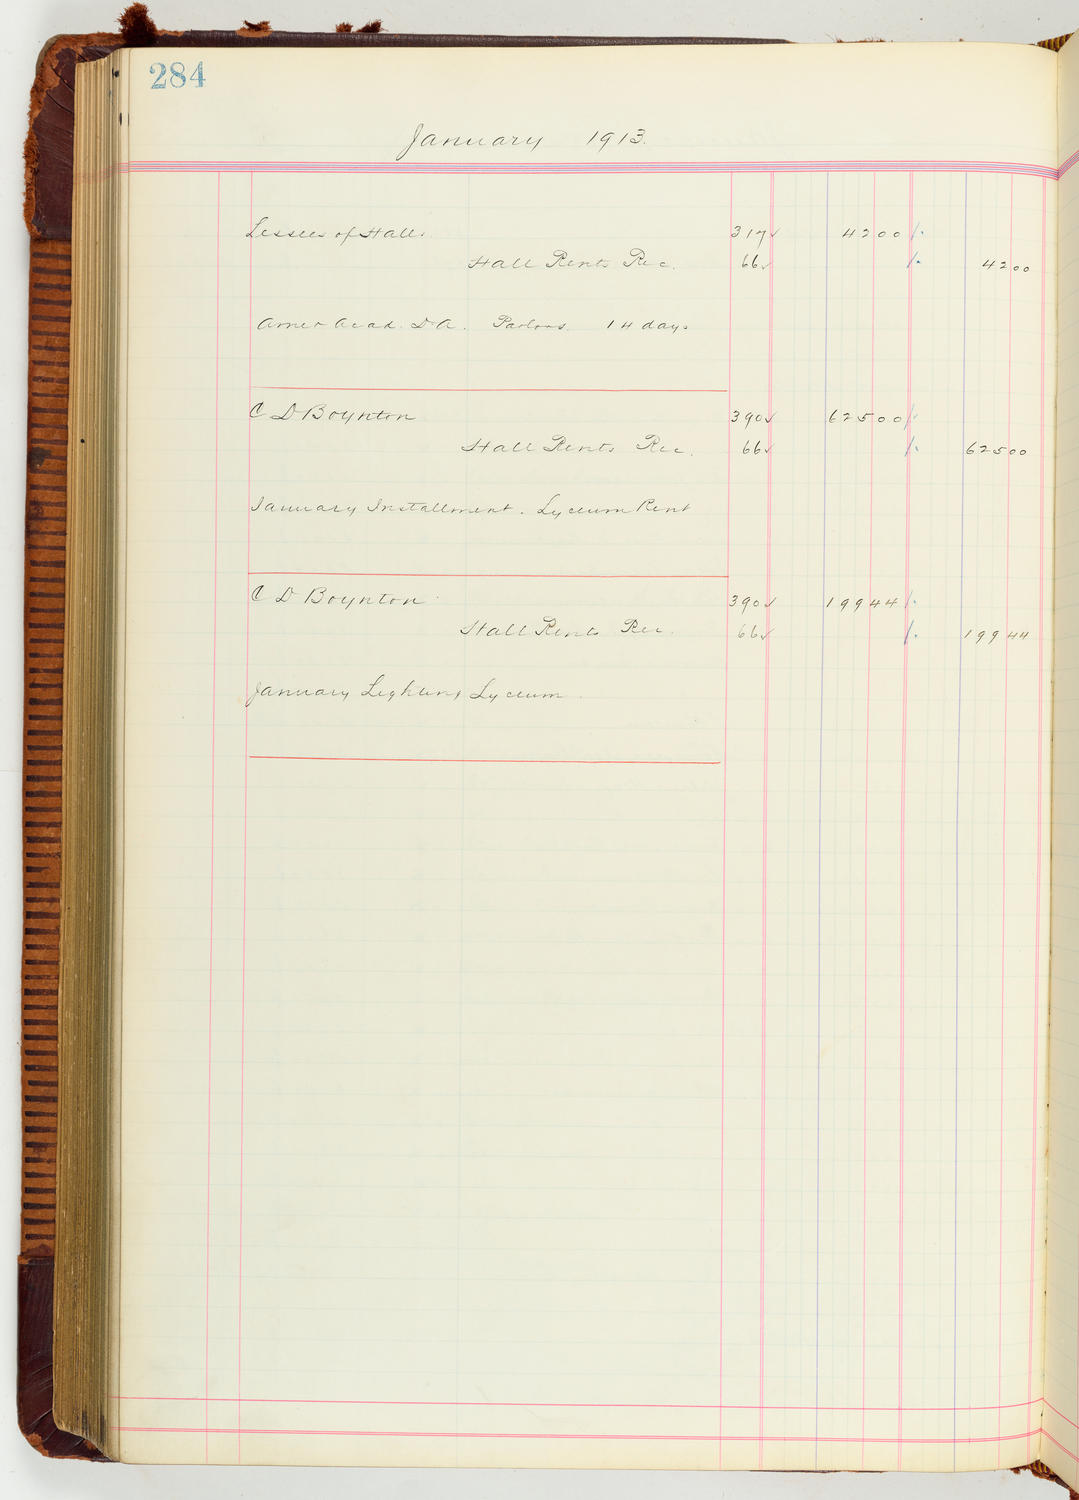 284
January 1913.
Lessees of Halls. 317✓ 4200
Hall Rents Rec. 66✓ 4200
Amer Acad. D A. Parlors 14 days
C D Boynton 390✓ 62500
Hall Rents Rec. 66✓ 62500
January Installment. Lyceum Rent
C D Boynton 390✓ 19944
Hall Rents Rec. 66✓ 19944
January Lighting Lyceum